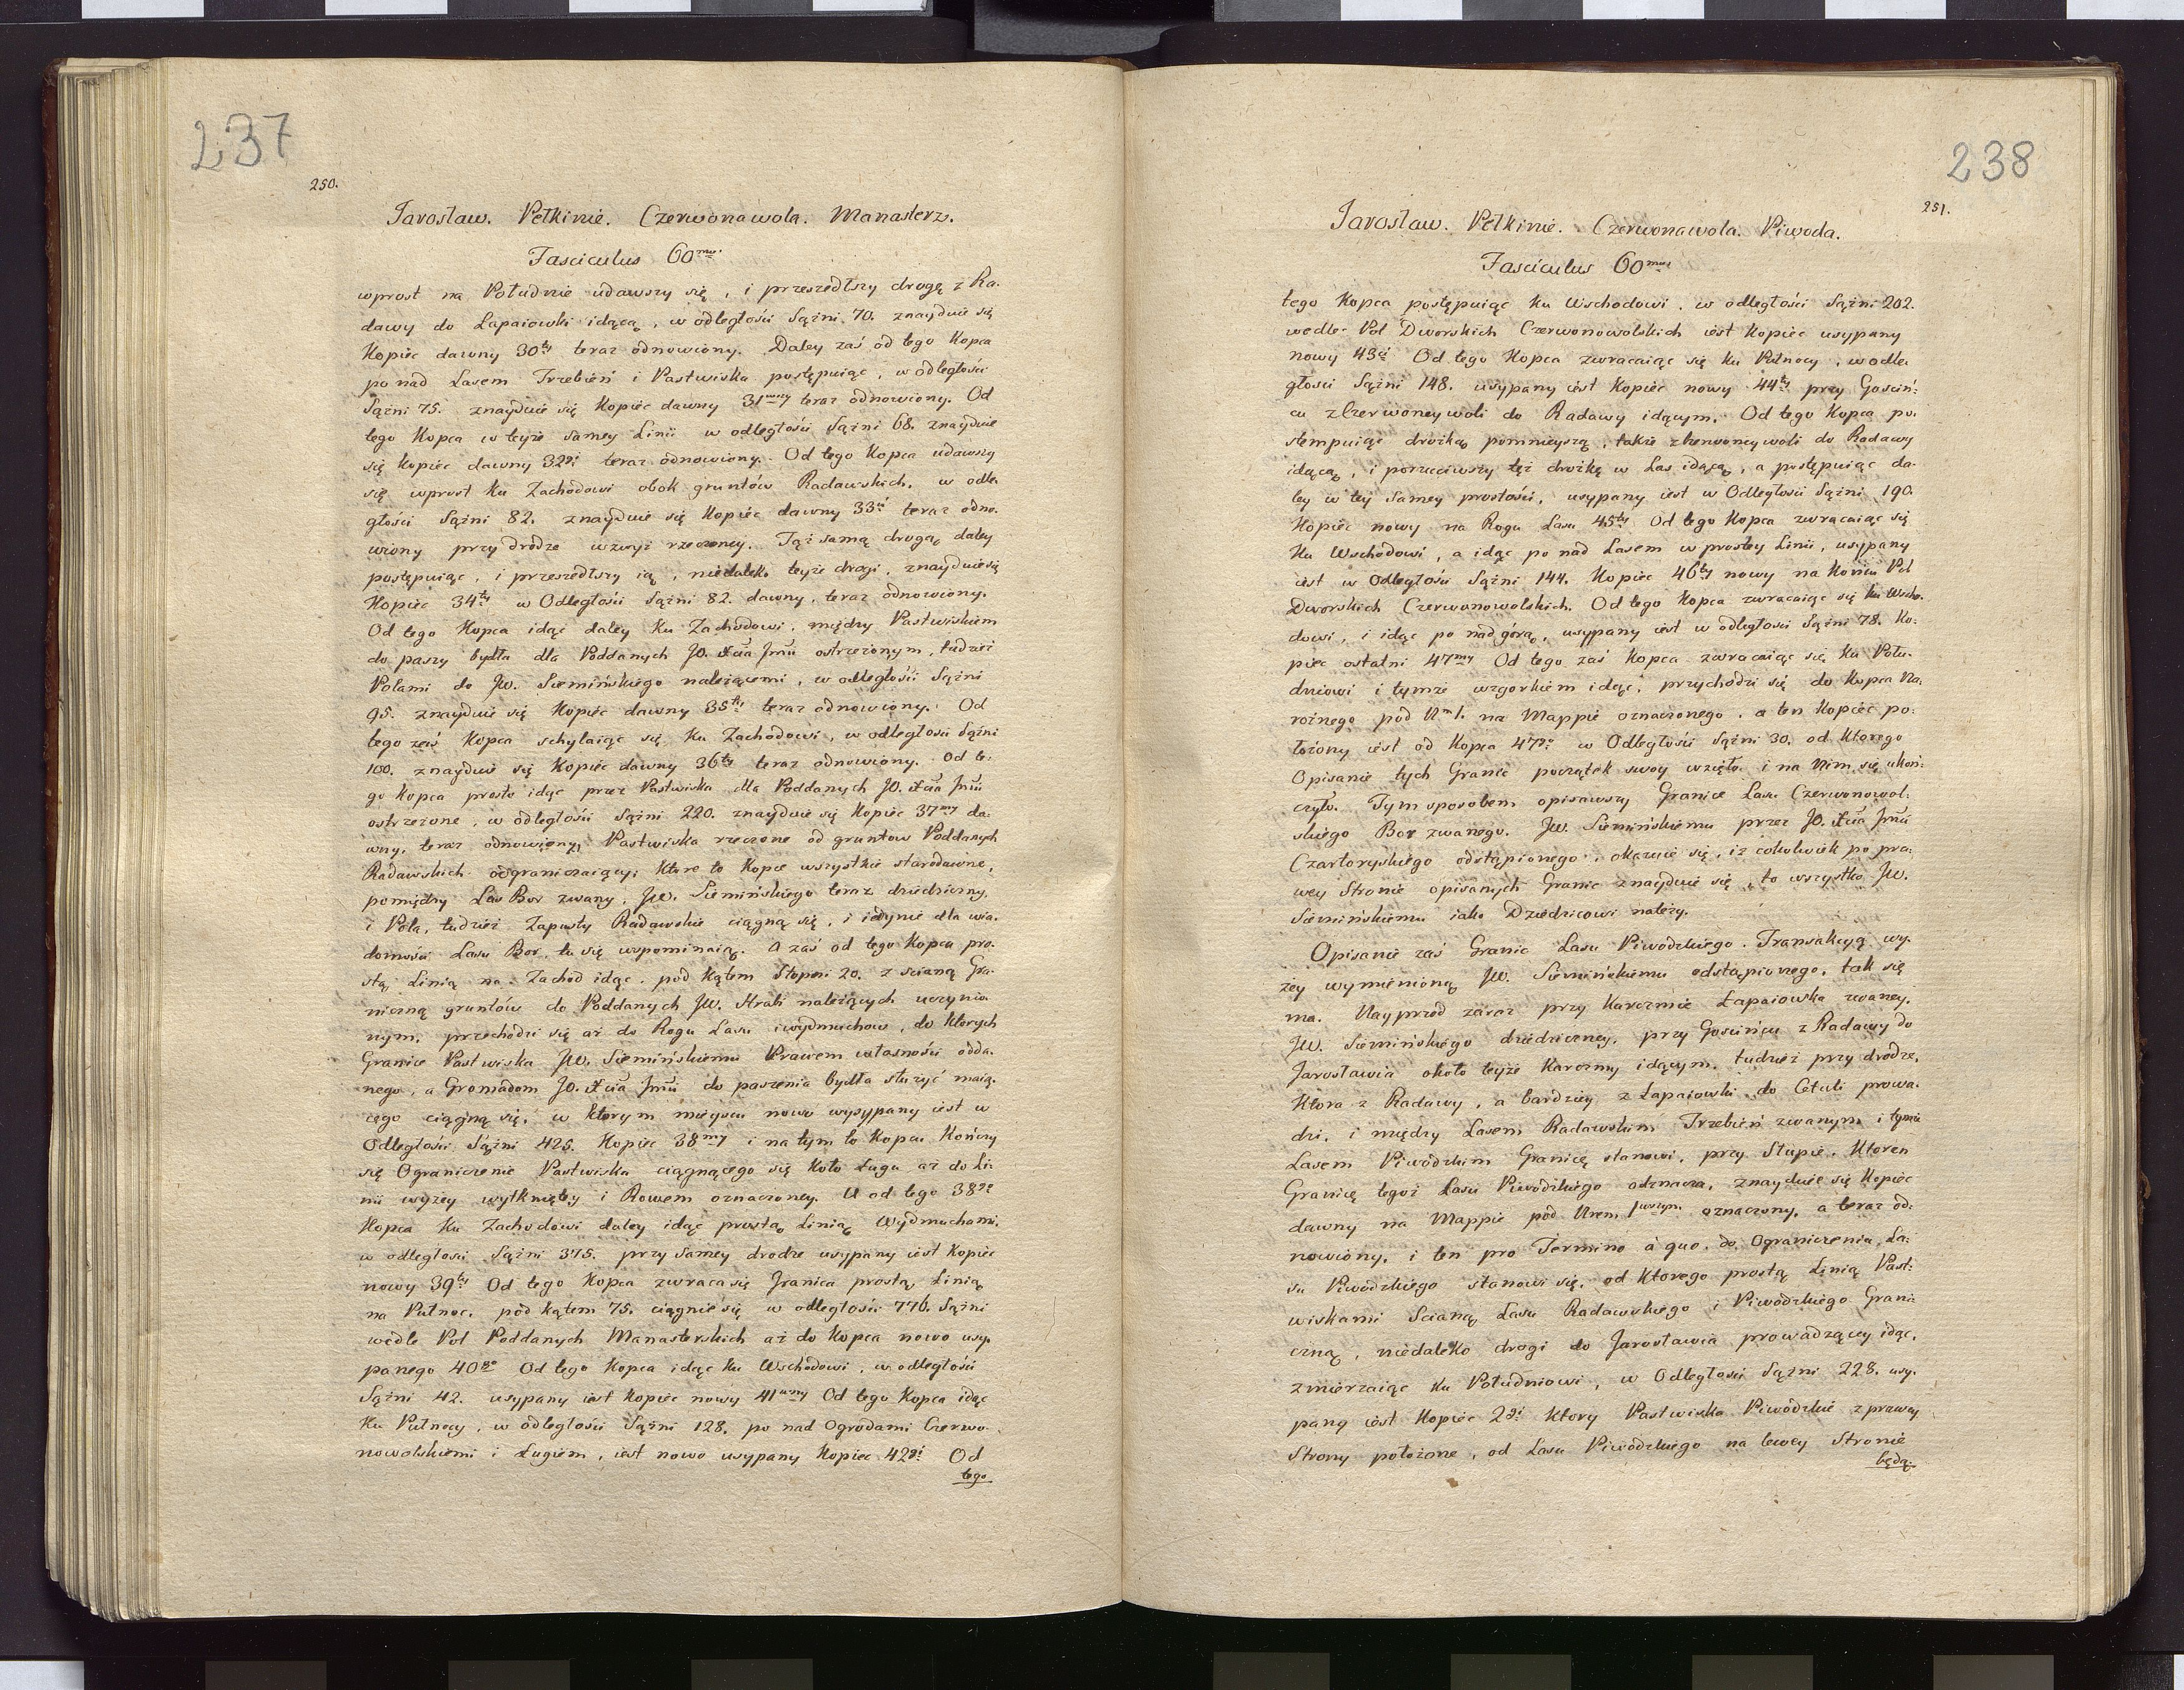 237
250.
Jarosław. Pełkinie. Czerwonawola. Manasterz.
Fasciculus 60mus
wprost na Południe udawszy się, i przeszedłszy drogę z Ra-
dawy do Łapaiowki idącą, w odległości Sążni 70. znayduie się
Kopiec dawny 30ty teraz odnowiony. Daley zaś od tego Kopca
po nad Lasem Trzebień i Pastwiska postępuiąc, w odległości
Sążni 75. znayduie się Kopiec dawny 31wszy teraz odnowiony. Od
tego Kopca w teyże samey Linii w odległości Sążni 68. znayduie
się Kopiec dawny 32gi teraz odnowiony. Od tego Kopca udawszy
się wprost ku Zachodowi obok gruntów Radawskich, w odle-
głości Sążni 82. znayduie się Kopiec dawny 33ci teraz odno-
wiony przy drodze wzwyż rzeczoney. Tąż samą drogą daley
postępuiąc, i przeszedłszy ią, niedaleko teyże drogi, znayduie się
Kopiec 34ty w Odległości Sążni 82. dawny, teraz odnowiony.
Od tego Kopca idąc daley ku Zachodowi, między Pastwiskiem
do paszy bydła dla Poddanych JO. Xcia Jmci ostrzeżonym, tudzież
Polami do JW. Siemińskiego należącemi, w odległości Sążni
95. znayduie się Kopiec dawny 35ty teraz odnowiony. Od
tego zaś Kopca schylaiąc się ku Zachodowi, w odległości Sążni
100. znayduie się Kopiec dawny 36ty teraz odnowiony. Od te-
go Kopca prosto idąc przez Pastwiska dla Poddanych JO. Xcia Jmci
ostrzeżone, w odległości Sążni 220. znayduie się Kopiec 37my da-
wny, teraz odnowiony, Pastwiska rzeczone od gruntow Poddanych
Radawskich odgraniczaiący; Ktore to Kopce wszystkie starodawne,
pomiędzy Las Bor zwany, JW. Siemińskiego teraz dziedziczny,
i Pola, tudzież Zapusty Radawskie ciągną się, i iedynie dla wia-
domości Lasu Bor, tu się wspominaią. A zaś od tego Kopca pro-
stą Linią na Zachod idąc, pod kątem Stopni 20. z scianą Gra-
niczną gruntów do Poddanych JW. Hrabi należących uczynio-
nym, przechodzi się aż do Rogu Lasu i wydmuchow, do ktorych
Granice Pastwiska JW. Siemińskiemu Prawem własności odda-
nego, a Gromadom JO. Xcia Jmci do paszenia bydła służyć maią-
cego ciągną się, w ktorym mieyscu nowo wysypany iest w
Odległości Sążni 425. Kopiec 38my i na tym to Kopcu Kończy
się Ograniczenie Pastwiska ciągnącego się koło Ługu aż do Li-
nii wyżey wytkniętey i Rowem oznaczoney. A od tego 38go
Kopca ku Zachodowi daley idąc prostą Linią Wydmuchami,
w odległości Sążni 375. przy samey drodze usypany iest Kopiec
nowy 39ty Od tego Kopca zwraca się Granica prostą Linią
na Pułnoc, pod kątem 75. ciągnie się w odległości 776. Sążni
wedle Pol Poddanych Manasterskich aż do Kopca nowo usy-
panego 40go Od tego Kopca idąc ku Wschodowi, w odległości
Sążni 42. usypany iest Kopiec nowy 41wszy Od tego Kopca idąc
ku Pułnocy, w odległości Sążni 128. po nad Ogrodami Czerwo-
nowolskiemi i Ługiem, iest nowo usypany Kopiec 42gi Od
tego
238
251.
Jarosław. Pełkinie. Czerwonawola. Piwoda.
Fasciculus 60mus
tego Kopca postępuiąc ku Wschodowi, w odległości Sążni 202.
wedle Pol Dworskich Czerwonowolskich iest Kopiec usypany
nowy 43ci Od tego Kopca zwracaiąc się ku Pułnocy, w odle-
głości Sążni 148. usypany iest Kopiec nowy 44ty przy Gościń-
cu z Czerwoneywoli do Radawy idącym. Od tego Kopca po-
stempuiąc drożką pomnieyszą, także z Czerwoneywoli do Radawy
idącą, i porzuciwszy tęż drożkę w Las idącą, a postępuiąc da-
ley w tey samey prostości, usypany iest w Odległości Sążni 190.
Kopiec nowy na Rogu Lasu 45ty Od tego Kopca zwracaiąc się
ku Wschodowi, a idąc po nad Lasem w prostey Linii, usypany
iest w Odległości Sążni 144. Kopiec 46ty nowy na Końcu Pol
Dworskich Czerwonowolskich. Od tego Kopca zwracaiąc się ku Wscho-
dowi, i idąc po nad górą, usypany iest w odległości Sążni 78. Ko-
piec ostatni 47my Od tego zaś Kopca zwracaiąc się ku Połu-
dniowi i tymże wzgorkiem idąc, przychodzi się do Kopca Na-
rożnego pod Nm 1. na Mappie oznaczonego, a ten Kopiec po-
łożony iest od Kopca 47go w Odległości Sążni 30. od ktorego
Opisanie tych Granic początek swoy wzięło i na nim się ukoń-
czyło. Tym sposobem opisawszy Granice Lasu Czerwonowol-
skiego Bor zwanego, JW. Siemińskiemu przez JO. Xcia Jmci
Czartoryskiego odstąpionego, okazuie się, iż cokolwiek po pra-
wey Stronie opisanych Granic znayduie się, to wszystko JW.
Siemińskiemu iako Dziedzicowi należy.
Opisanie zaś Granic Lasu Piwodzkiego, Transakcyą wy-
żey wymienioną JW. Siemińskiemu odstąpionego, tak się
ma. Nayprzod zaraz przy Karczmie Łapaiowka zwaney,
JW. Siemińskiego dziedziczney, przy Gościńcu z Radawy do
Jarosławia około teyże Karczmy idącym, tudzież przy drodze,
ktora z Radawy, a bardziey z Łapaiowki do Cetuli prowa-
dzi, i między Lasem Radawskim Trzebień zwanym i tymże
Lasem Piwodzkim Granicę stanowi, przy Słupie, ktoren
Granicę tegoż Lasu Piwodzkiego oznacza, znayduie się Kopiec
dawny na Mappie pod Nrem 1wszym oznaczony, a teraz od-
nowiony, i ten pro Termino à quo, do Ograniczenia La-
su Piwodzkiego stanowi się, od ktorego prostą Linią Past-
wiskami Scianą Lasu Radawskiego i Piwodzkiego Grani-
czną, niedaleko drogi do Jarosławia prowadzącey idąc,
zmierzaiąc ku Południowi, w Odległości Sążni 228. usy-
pany iest Kopiec 2gi ktory Pastwiska Piwodzkie z prawey
Strony położone, od Lasu Piwodzkiego na lewey Stronie
będą-